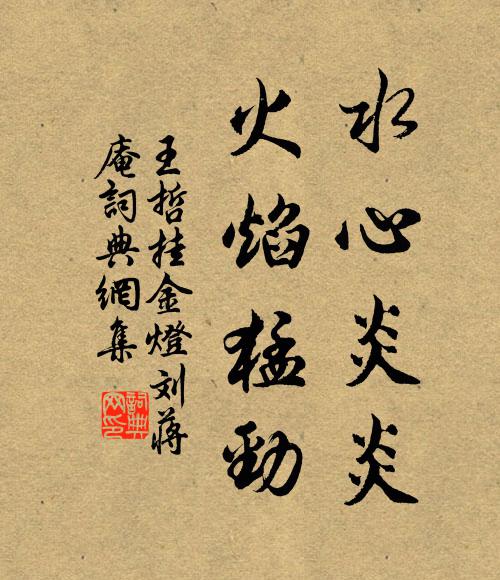 水心炎炎
火焰猛勁
王哲挂金燈刘蔣
庵詞典網集
詞典网印